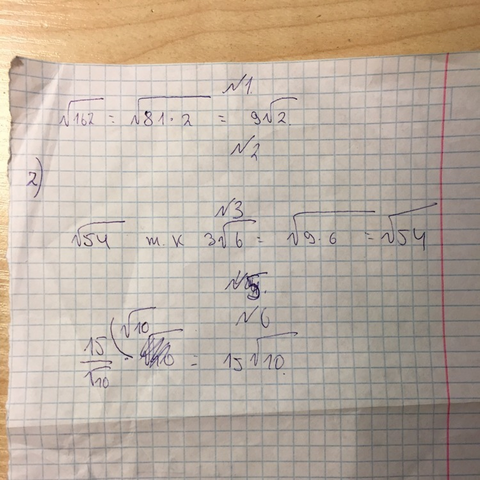 №1
√162 = √81·2 = 9√2.
№2
2)
№3
√54 т.к 3√6 = √9·6 = √54
№6
15/√10 = 15√10.